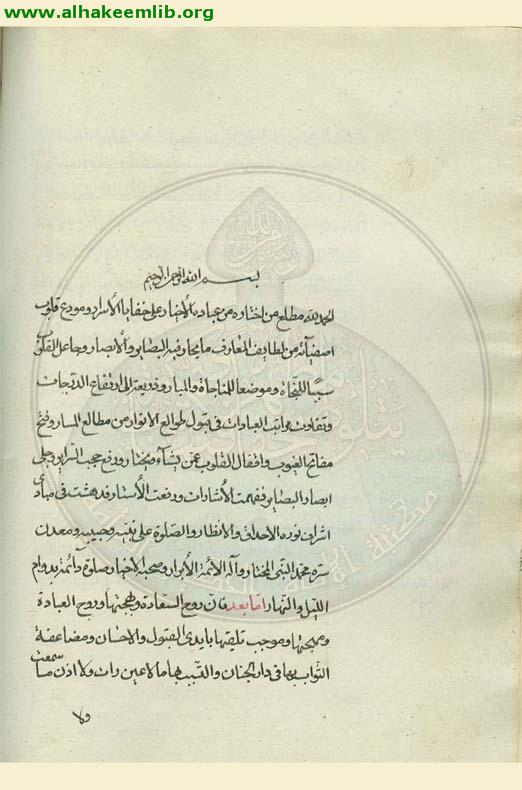 www.alhakeemlib.org
بسم الله الرحمن الرحيم
الحمد لله مطلع من اختاره من عباده الأخيار على خفايا الأسرار ومودع قلوب
اصفيآئه من لطايف المعارف ما يحار فيه البصاير والأبصار وجاعل القلوب
سببًا للنجاة وموضعا للمناجاة والمبار وذريعة الى ارتفاع الدرجات
وتفاوت مراتب العبادات في قبول طوالع الانوار من مطالع المسار وفتح
مفاتح الغيوب واقفال القلوب عمن يشآء ويختار ورفع حجب السراير وجلى
ابصار البصاير ففهمت الأشارات ورفعت الأستار فدهشت في مبادي
اشراق نوره الاحداق والانظار والصلوة على نبيه وحبيبه ومعدن
سره محمد النبي المختار وآله الأئمة الأبرار وصحبه الاخيار صلوة دآئمة بدوام
الليل والنهار اما بعد فان روح السعادة وبهجتها وروح العبادة
ومهجتها وموجب تلقيها بايدى القبول والاحسان ومضاعفة
الثواب بها في دار الجنان والقبب بها ما لا عين رات ولا اذن سمعت
ولا